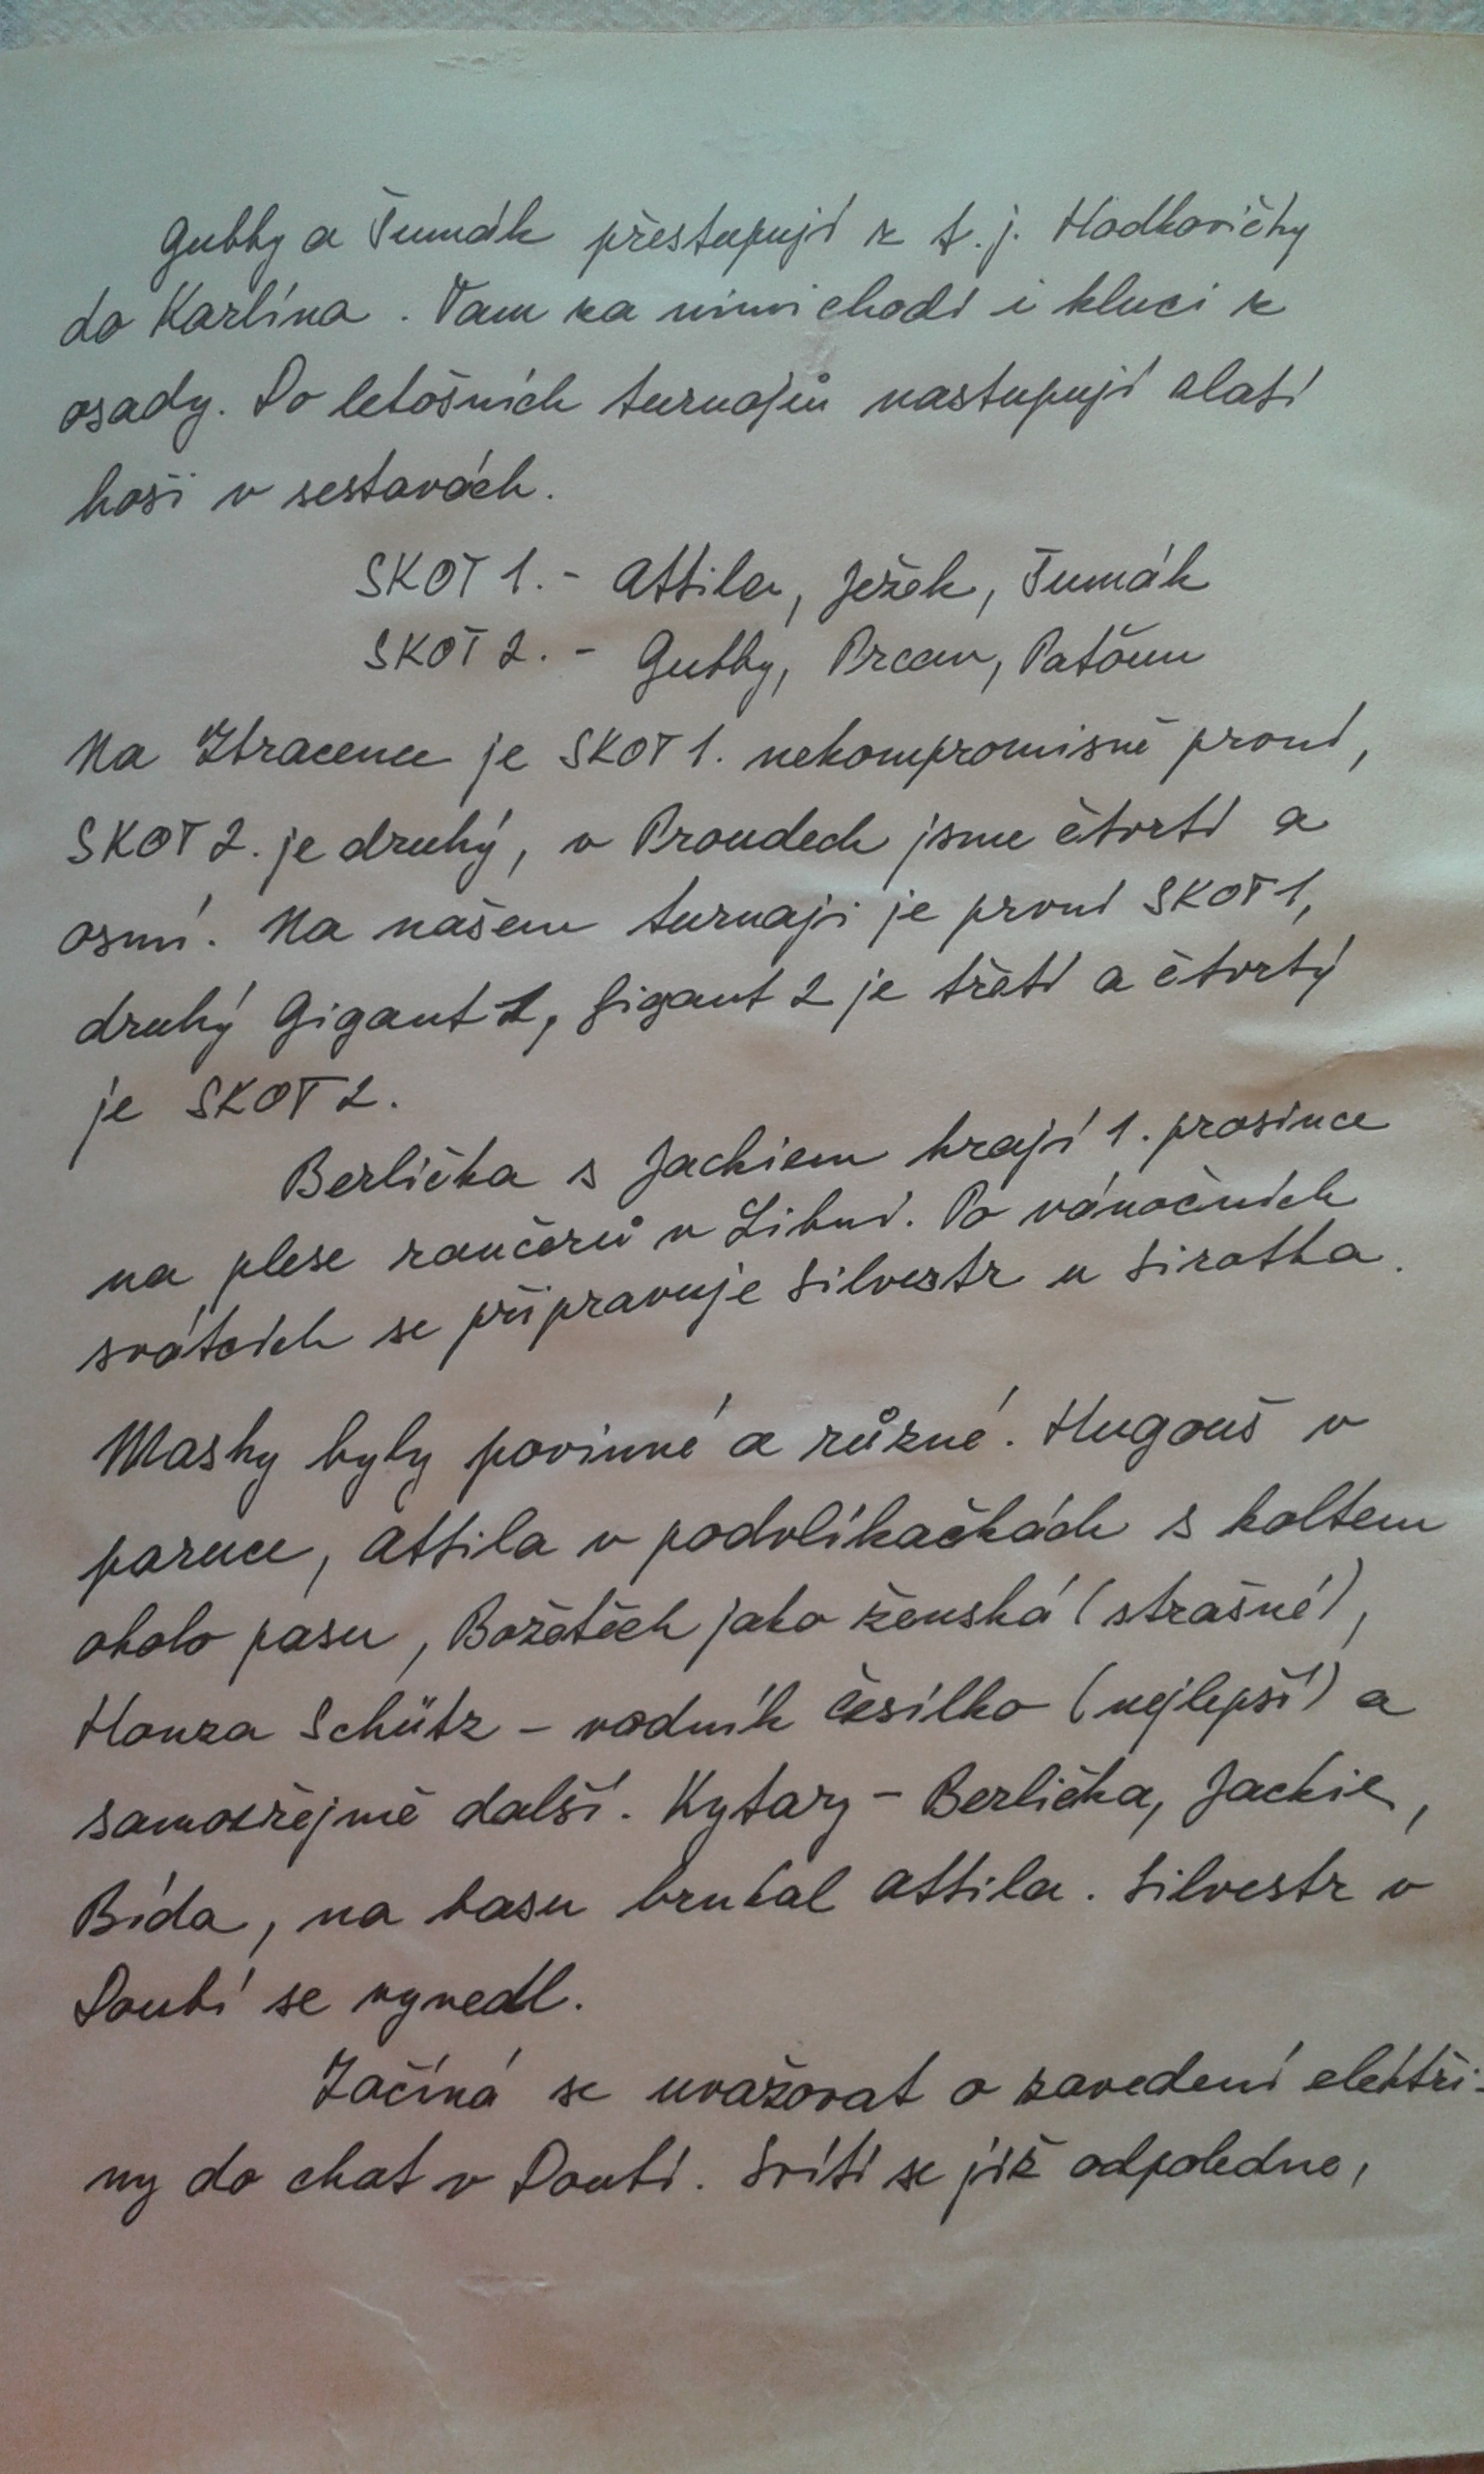 Gubby a Šumák přestupují z t.j. Hodkovičky
do Karlína. Tam za nimi chodí i kluci z
osady. Do letošních turnajů nastupují zlatí
hoši v sestavách.
SKOT 1. - Attila, Ježek, Šumák
SKOT 2. - Gubby, Prcan, Paťoun
Na Ztracence je SKOT 1. nekompromisně první,
SKOT 2. je druhý, v Proudech jsme čtvrtí a
osmí. Na našem turnaji je první SKOT 1,
druhý Gigant 1, Gigant 2 je třetí a čtvrtý
je SKOT 2.
Berlička s Jackiem hrají 1. prosince
na plese rančerů v Libni. Po vánočních
svátcích se připravuje Silvestr u Sirotka.
Masky byly povinné a různé. Hugouš v
paruce, Attila v podvlíkačkách s koltem
okolo pasu, Božetěch jako ženská (strašné),
Honza Schütz - vodník Česílko (nejlepší) a
samozřejmě další. Kytary - Berlička, Jackie,
Bída, na basu brnkal Attila. Silvestr v
Doubí se vyvedl.
Začíná se uvažovat o zavedení elektři-
ny do chat v Doubí. Svítí se již odpoledne,